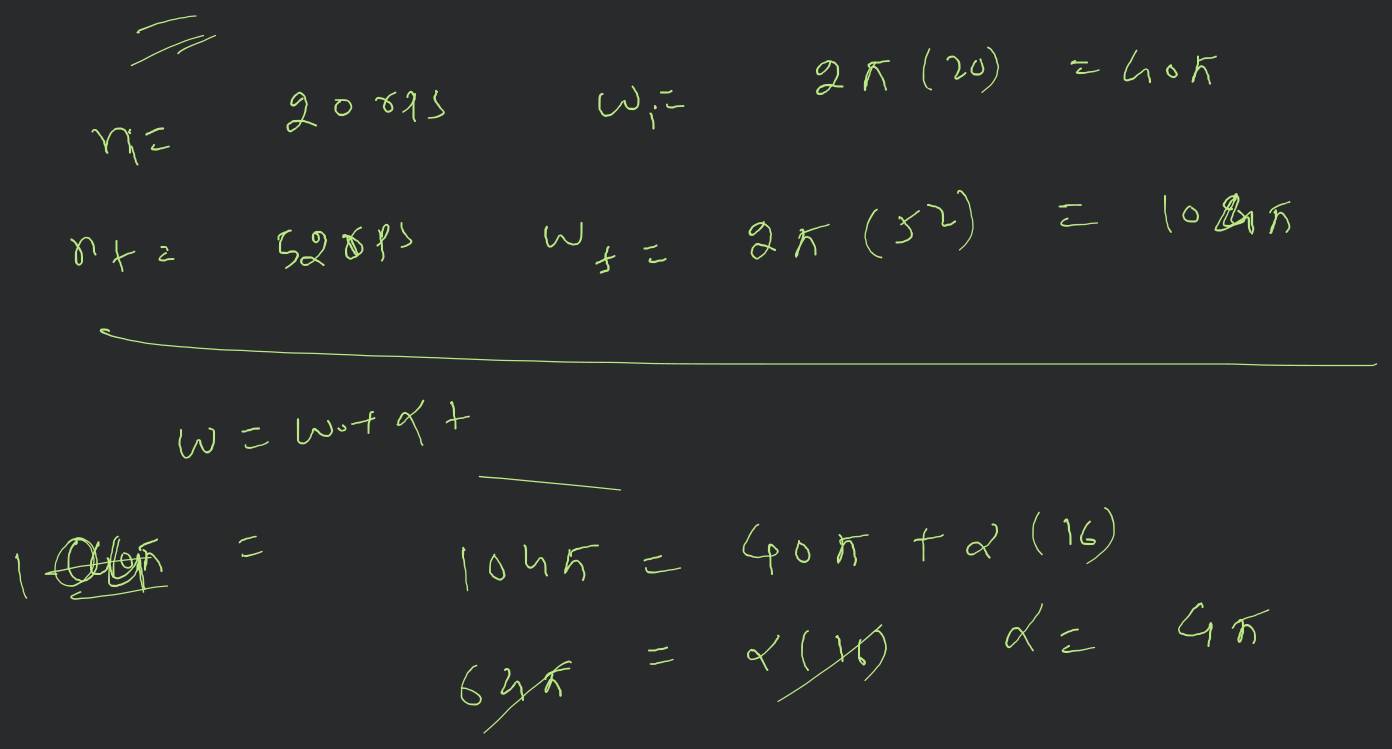 n = 20 rps ω_i = 2π (20) = 40π
n_f = 52 rps ω_f = 2π (52) = 104π
ω = ω₀ + αt
= 104π = 40π + α (16)
64π = α (16) α = 4π